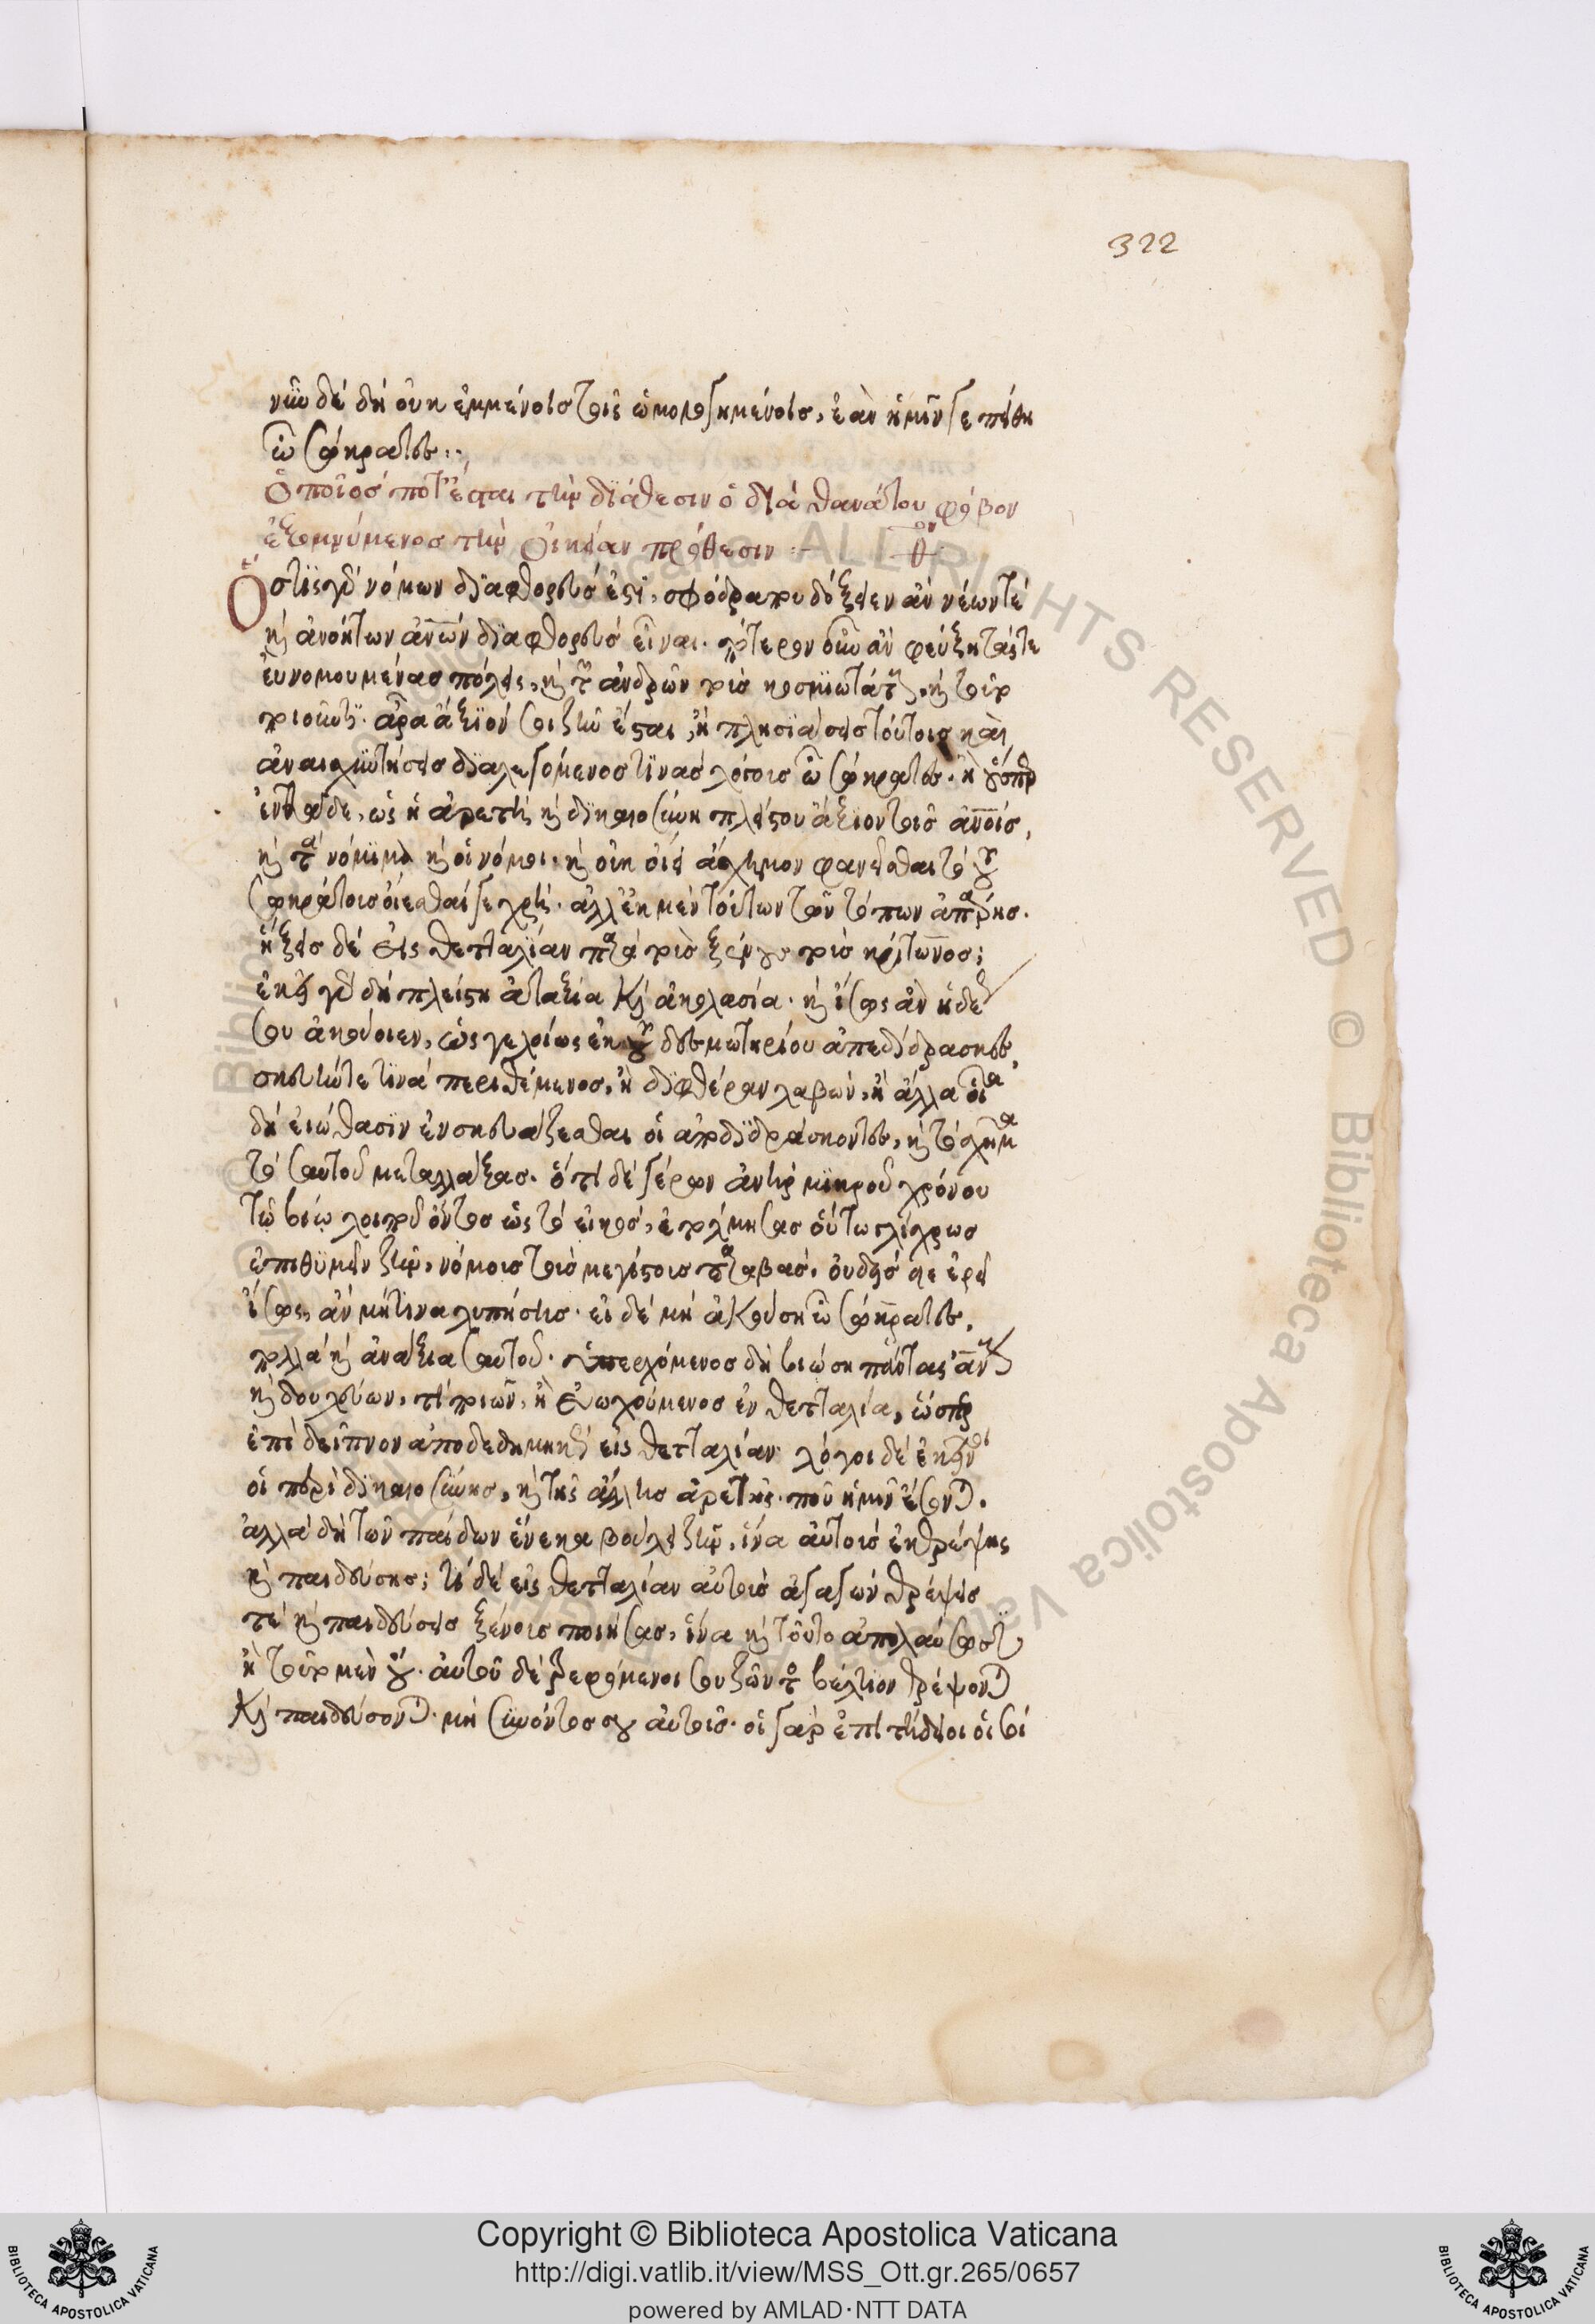 322
νῦν δὲ δὴ οὐκ ἐμμένεις τοῖς ὡμολογημένοις, ἐὰν ἡμῖν γε πείθη
ὦ σώκρατες:
Ὁποῖος ποτ' ἔσται τὴν διάθεσιν ὁ διὰ θανάτου φόβον
ἐξομνύμενος τὴν οἰκείαν πρόθεσιν :-
Ὅστις γὰρ νόμων διαφθορεύς ἐστι, σφόδρα που δόξειεν ἂν νέων τέ
καὶ ἀνοήτων ἀνων διαφθορεύς εἶναι. πότερον οὖν ἂν φεύξη τάς τε
εὐνομουμένας πόλεις, καὶ τῶν ἀνδρῶν τοὺς κοσμιωτάτους, καὶ τοῦτο
ποιοῦντι ἆρα ἄξιόν σοι ζῆν ἔσται, ἢ πλησιάσεις τούτοις καὶ
ἀναισχυντήσεις διαλεγόμενος τινὰς λόγους ὦ σώκρατες. ἢ οὕσπερ
ἐνθάδε, ὡς ἡ ἀρετὴ καὶ δικαιοσύνη πλείστου ἄξιον τοῖς ἀνοις,
καὶ τὰ νόμιμα καὶ οἱ νόμοι. καὶ οὐκ οἴει ἄσχημον φανεῖσθαι τὸ τοῦ
σωκράτους οἴεσθαί γε χρή. ἀλλ' ἐκ μὲν τούτων τῶν τόπων ἀπαρεῖς.
ἥξεις δὲ εἰς θετταλίαν παρὰ τοὺς ξένους τοὺς κρίτωνος;
ἐκεῖ γὰρ δὴ πλείστη ἀταξία καὶ ἀκολασία. καὶ ἴσως ἂν ἡδέως
σου ἀκούοιεν, ὡς γελοίως ἐκ τοῦ δεσμωτηρίου ἀπεδίδρασκες,
σκευήν τέ τινα περιθέμενος, ἢ διφθέραν λαβών, ἢ ἄλλα οἷα
δὴ εἰώθασιν ἐνσκευάζεσθαι οἱ ἀποδιδράσκοντες, καὶ τὸ σχῆμα
τὸ σαυτοῦ μεταλλάξας. ὅτι δὲ γέρων ἀνὴρ μικροῦ χρόνου
τῷ βίῳ λοιποῦ ὄντος ὡς τὸ εἰκός, ἐτόλμησας οὕτω γλίσχρως
ἐπιθυμεῖν ζῆν, νόμους τοὺς μεγίστους παραβάς, οὐδεὶς ὃς ἐρεῖ
ἴσως ἂν μή τινα λυπήσῃς. εἰ δὲ μὴ ἀκούσῃ ὦ σώκρατες,
πολλὰ καὶ ἀνάξια σαυτοῦ. ὑπερχόμενος δὴ βιώσῃ πάντας ἀνους
καὶ δουλεύων. τί ποιῶν, ἢ εὐωχούμενος ἐν θετταλίᾳ, ὥσπερ
ἐπὶ δεῖπνον ἀποδεδημηκὼς εἰς θετταλίαν. λόγοι δὲ ἐκεῖνοι
οἱ περὶ δικαιοσύνης, καὶ τῆς ἄλλης ἀρετῆς. ποῦ ἡμῖν ἔσονται.
ἀλλὰ δὴ τῶν παίδων ἕνεκα βούλει ζῆν, ἵνα αὐτοὺς ἐκθρέψῃς
καὶ παιδεύσῃς; τί δὲ εἰς θετταλίαν αὐτοὺς ἀγαγὼν θρέψεις
τὲ καὶ παιδεύσεις ξένους ποιήσας, ἵνα καὶ τοῦτο ἀπολαύσωσι
ἢ τοῦτο μὲν οὔ. αὐτοῦ δὲ τρεφόμενοι σου ζῶντος βέλτιον θρέψονται
καὶ παιδεύσονται. μὴ συνόντος σου αὐτοῖς. οἱ γὰρ ἐπιτήδειοι οἱ σοὶ
Copyright © Biblioteca Apostolica Vaticana
http://digi.vatlib.it/view/MSS_Ott.gr.265/0657
powered by AMLAD·NTT DATA